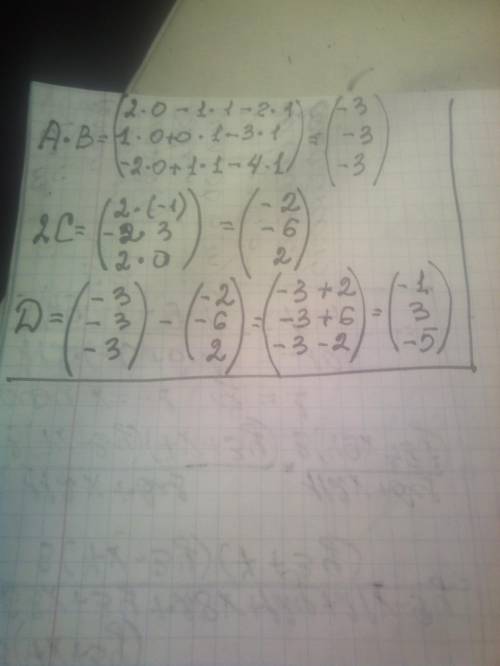 A·B = (2·0 - 1·1 - 2·1; 1·0+0·1-3·1; -2·0+1·1-4·1) = (-3; -3; -3)
2C = (2·(-1); -2·3; 2·0) = (-2; -6; 2)
D = (-3; -3; -3) - (-2; -6; 2) = (-3+2; -3+6; -3-2) = (-1; 3; -5)